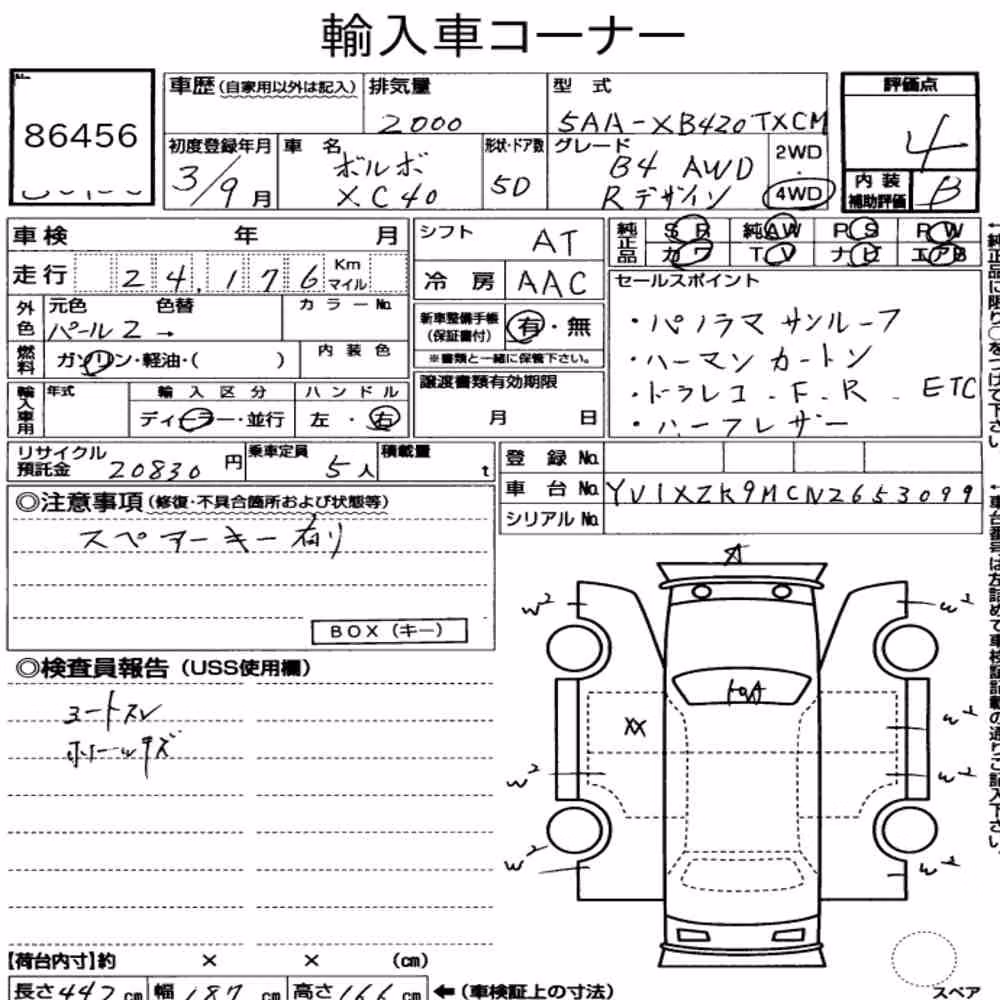 輸入車コーナー
No. 86456
車歴(自家用以外は記入) 排気量 2000 型式 5AA-XB420TXCM
評価点 4
初度登録年月 3/9月 車名 ボルボ XC40 形状・ドア数 5D グレード B4 AWD Rデザイン 2WD・4WD
内装補助評価 B
車検 年 月 シフト AT 純正品 SR 純AW PS PW
カワ TV ナビ エアB
走行 24,176 Km マイル 冷房 AAC
セールスポイント
外色 元色 パール2→ 色替 カラーNo.
新車整備手帳(保証書付) 有・無
※書類と一緒に保管下さい。
・パノラマサンルーフ
・ハーマンカードン
・ドラレコ.F.R. ETC
・ハーフレザー
燃料 ガソリン・軽油・( ) 内装色
譲渡書類有効期限
月 日
輸入車用 年式 輸入区分 ハンドル
ディーラー・並行 左・右
リサイクル預託金 20830円 乗車定員 5人 積載量 t
登録No.
車台No. YV1XZK9MCN2653099
シリアルNo.
◎注意事項(修復・不具合箇所および状態等)
スペアーキー有り
BOX(キー)
◎検査員報告(USS使用欄)
A
W2 W2
XX
W2
W2 W2
W2 W2
【荷台内寸】約 × × (cm)
長さ442cm 幅187cm 高さ166cm ←(車検証上の寸法)
スペア
←純正品に限り○をつけて下さい。
←車台番号は左詰めで車検証記載の通りご記入下さい。